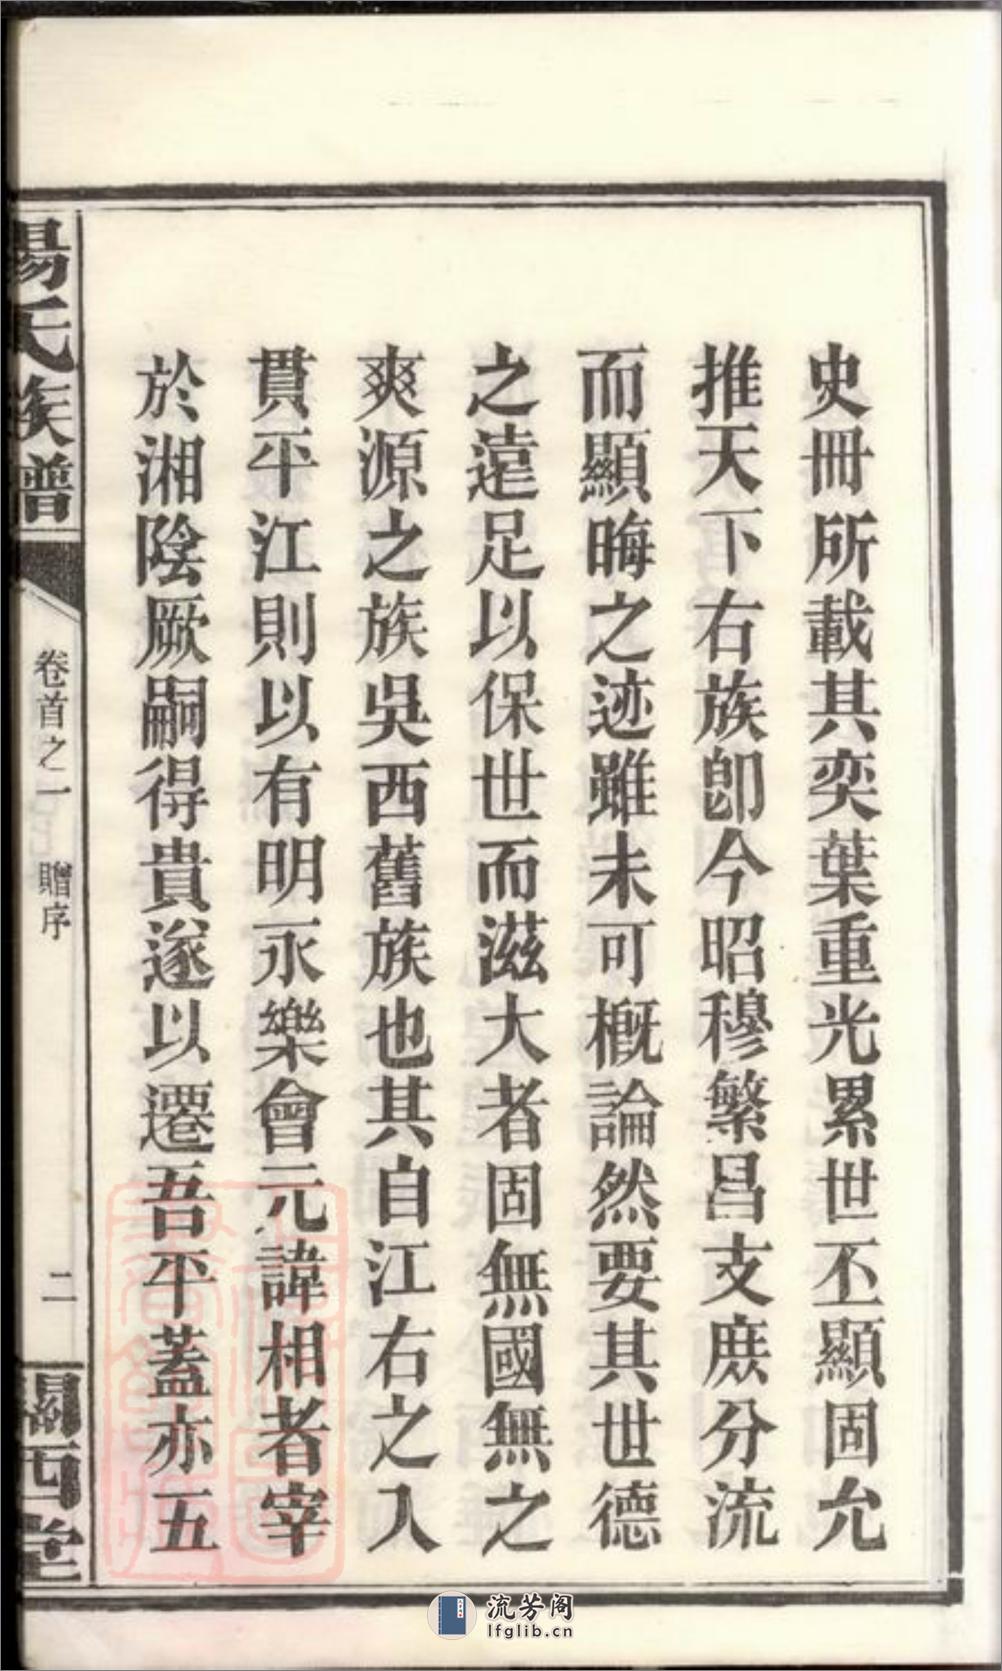 史冊所載其奕葉重光累世丕顯固允
推天下右族卽今昭穆繁昌支庶分流
而顯晦之迹雖未可槪論然要其世德
之遠足以保世而滋大者固無國無之
爽源之族吳西舊族也其自江右之入
貫平江則以有明永樂會元諱相者宰
於湘陰厥嗣得貴遂以遷吾平蓋亦五
楊氏族譜
卷首之一 贈序
二
關西堂
流芳阁
lfglib.cn